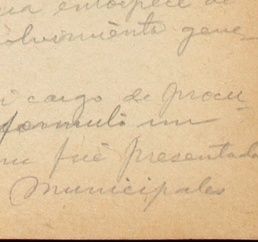 entorpece de
olvimiento gene
i cargo de procu_
formuló un
fué presentado
Municipales